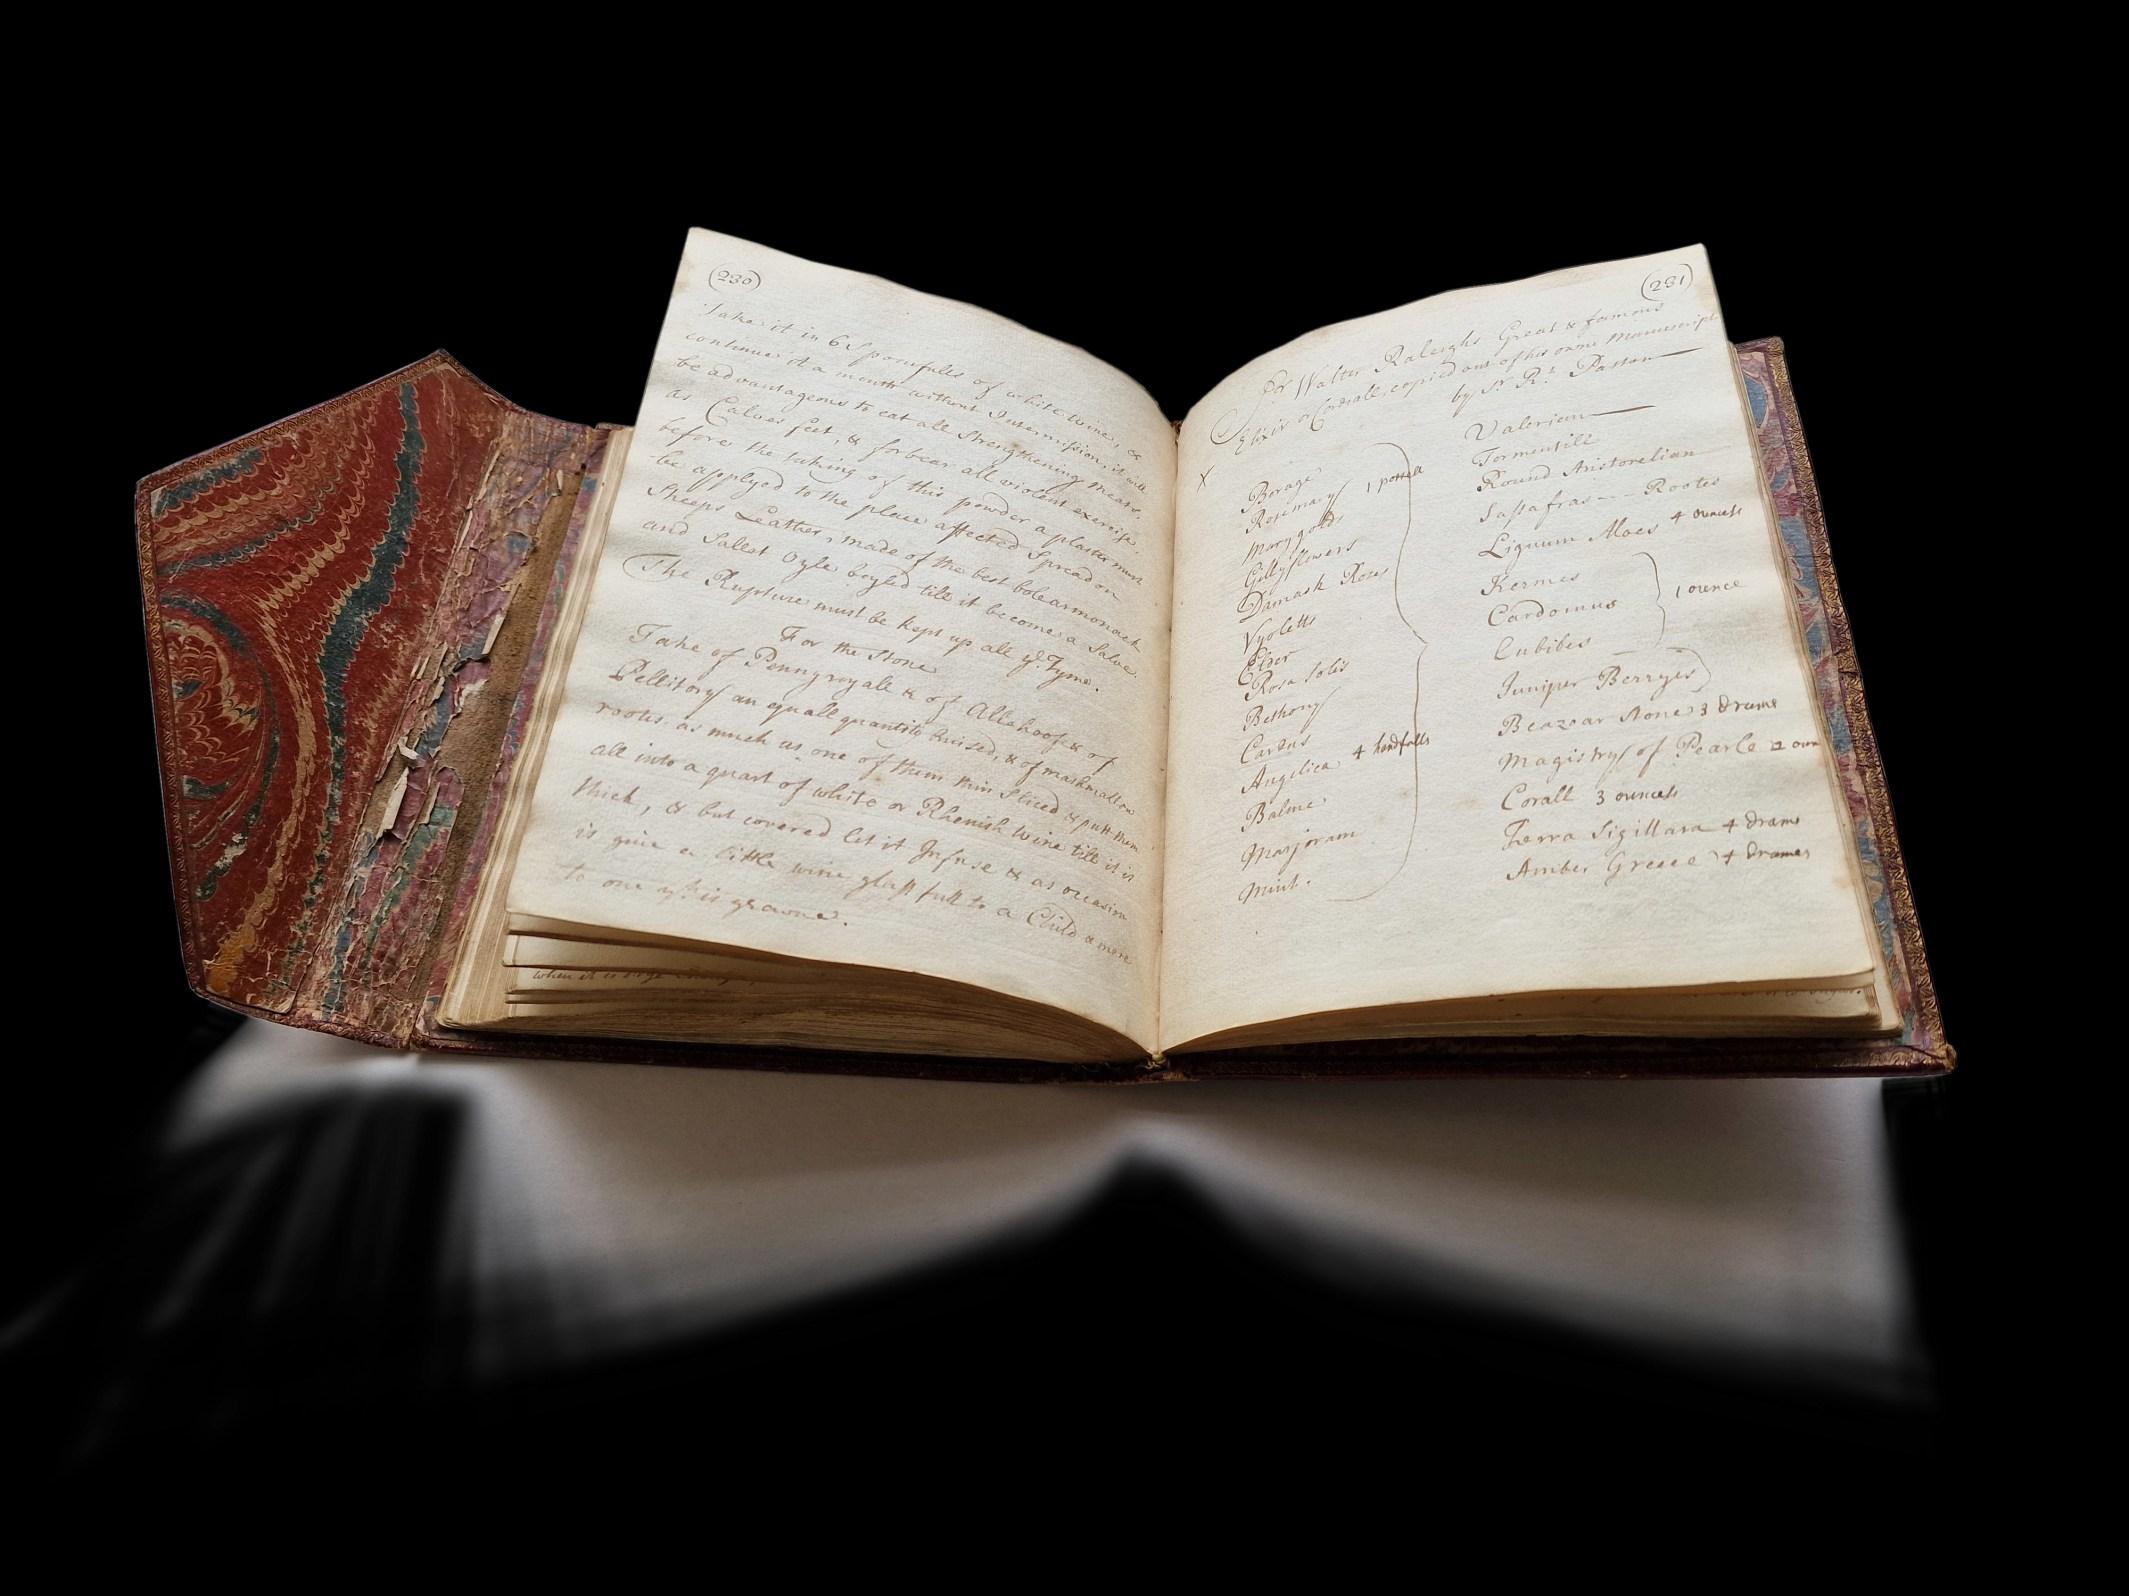 (230)
Take it in 6 Spoonfulls of white wine, &
continue it a month without Intermission, it will
be advantageous to eat all strengthening meats,
as Calves feet, & forbear all violent exercise,
before the taking of this powder a plaster must
be applyed to the place affected Spread on
Sheeps Leather, made of the best bolearmonack
and Sallet Oyle boyled till it become a Salve
The Rupture must be kept up all ye Tyme.
For the Stone
Take of Pennyroyall & of Allehoof & of
Pellitory an equall quantity bruised, & of mashmallow
roots, as much as one of them thin sliced & putt them
all into a quart of white or Rhenish Wine till it is
thick, & but covered let it Infuse & as occasion
is give a little wine glass full to a Child & more
to one yt is growne.
(231)
Sr Walter Raleighs Great & famous
Elixir or Cordiall, copied out of his owne Manuscript
by Sr Rt Paston
X
Borage
Rosemary 1 pottell
Marygolds
Gillyflowers
Damask Roses
Vyoletts
Elder
Rosa Solis
Bethony
Cardus
Angelica 4 handfulls
Balme
Marjoram
Mint.
Valerian
Tormentill
Round Aristorelian
Sassafras - - - Rootes
Lignum Aloes 4 ounces
Kermes
Cardomus 1 ounce
Cubibes
Juniper Berryes
Beazoar Stone 3 drams
Magistry of Pearle 2 oun
Corall 3 ounces
Terra Sigillara 4 drams
Amber Greece 4 drames